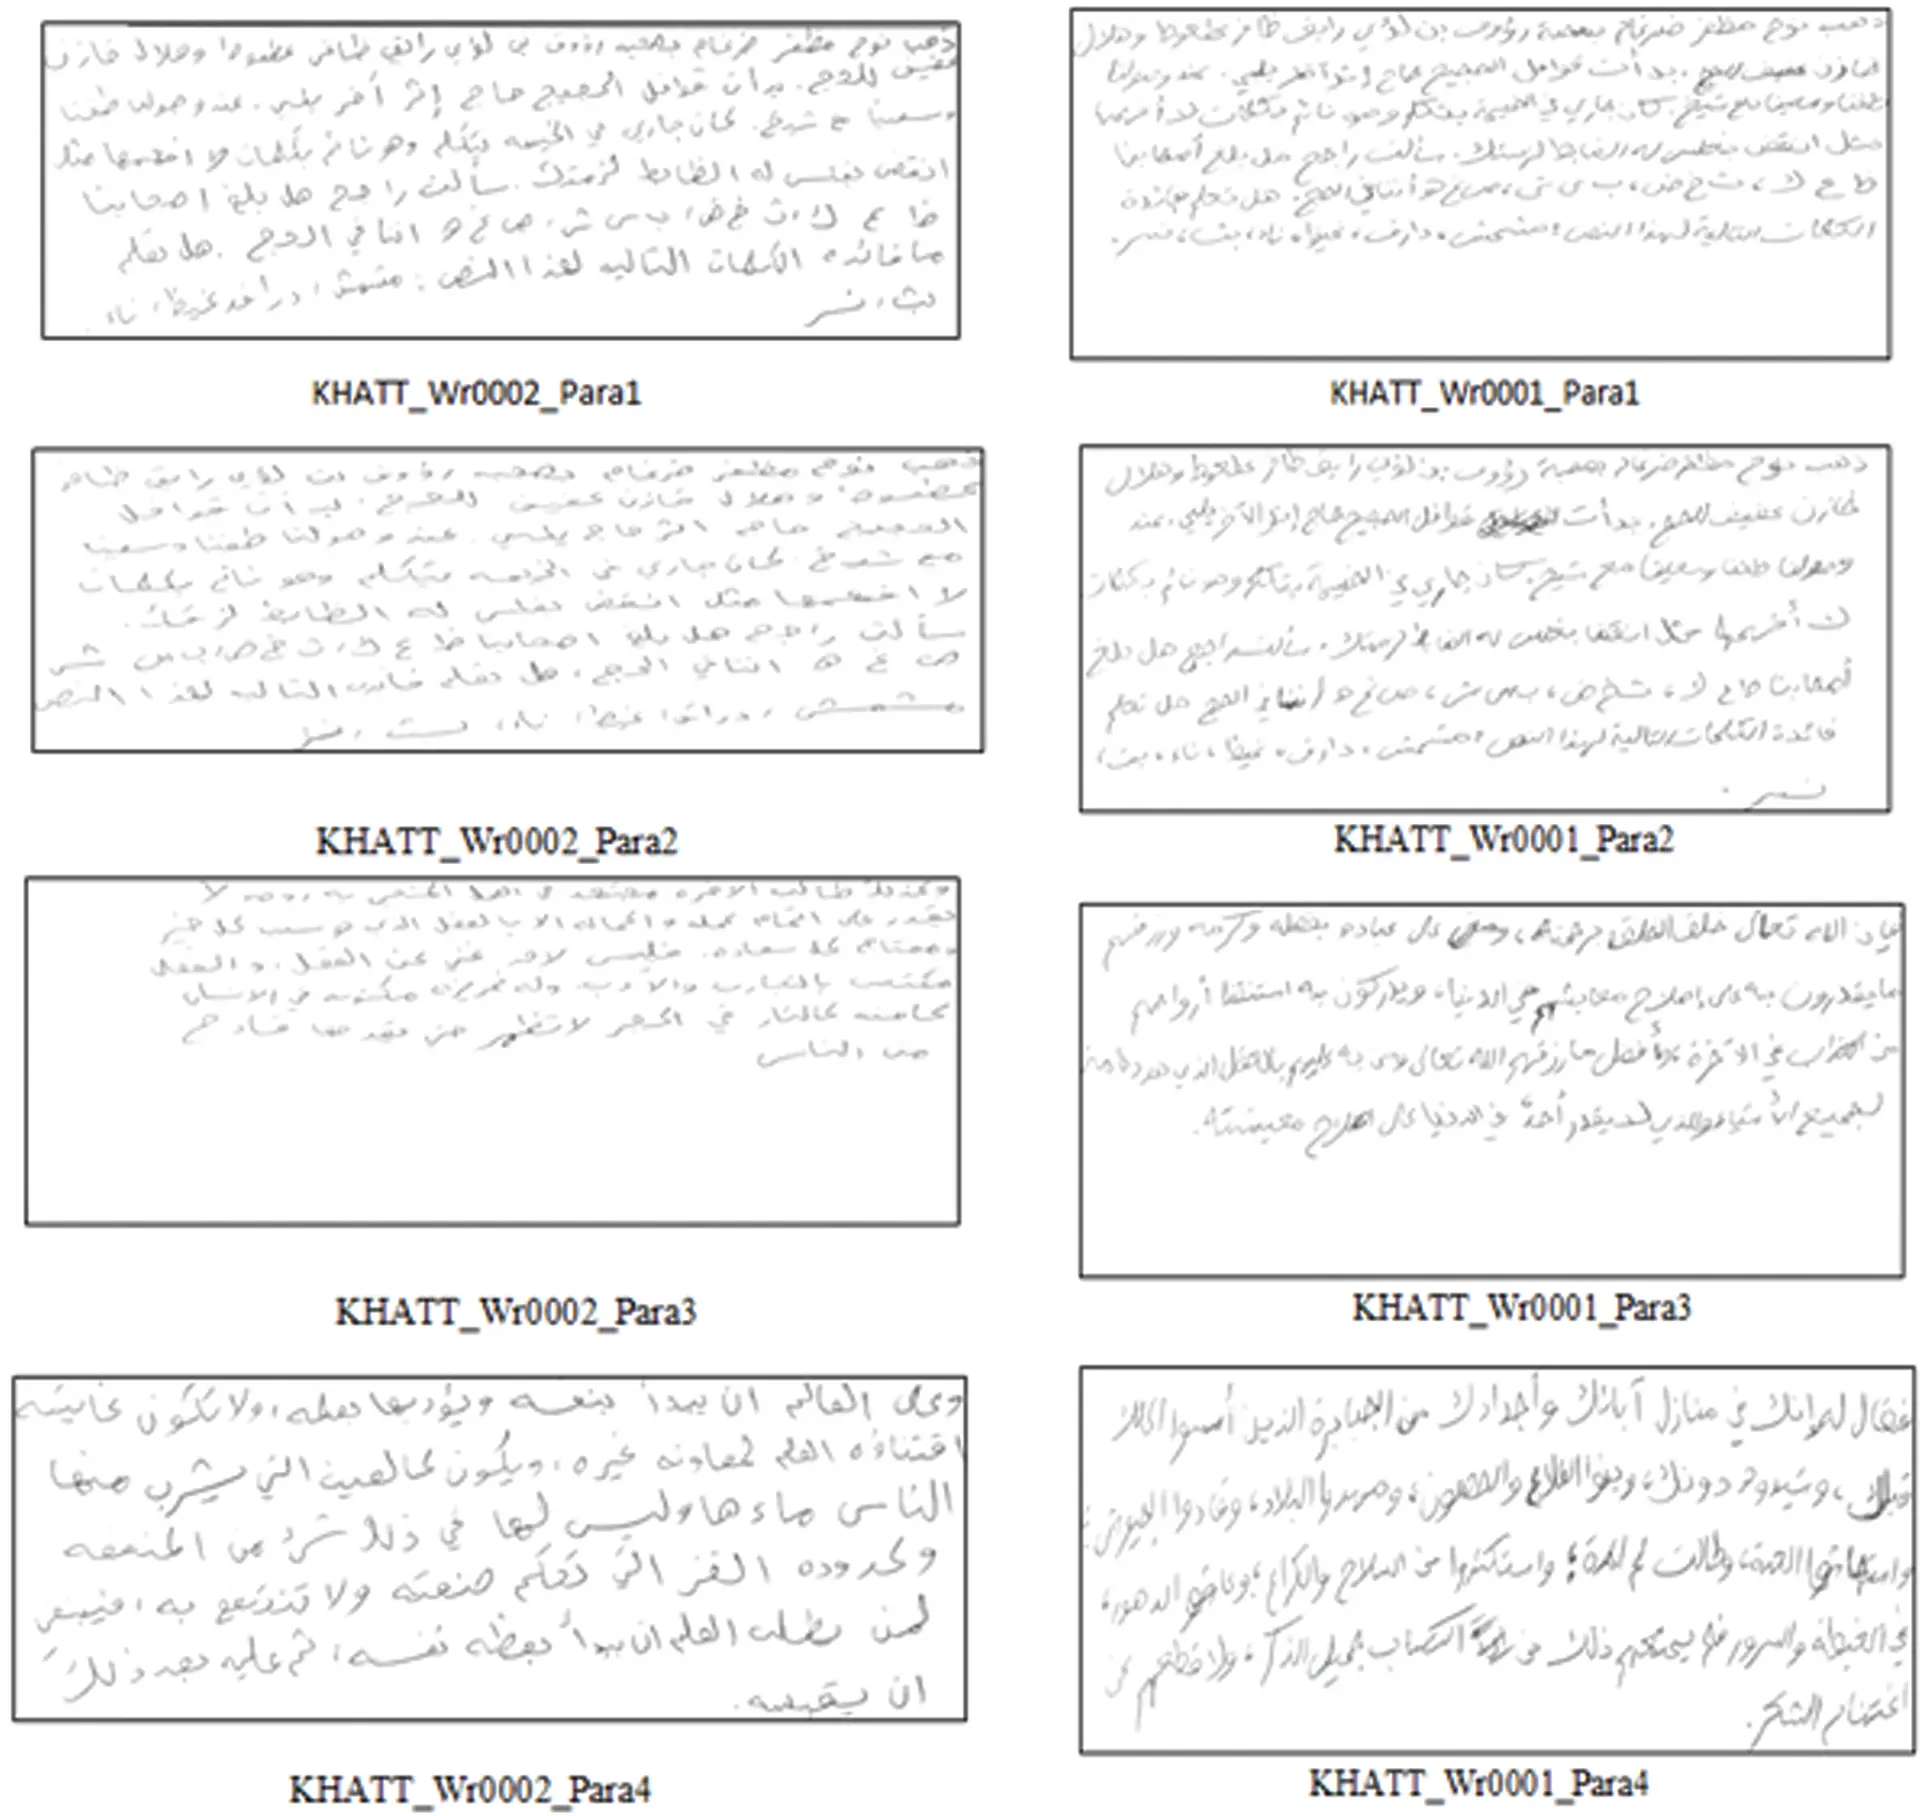 ذهب نوح مظفر ضرغام بصحبه رؤوف بن لؤي رائق ظافر عطعوط وهلال خازن
عفيف للحج. بدأت قوافل الحجيج حاج إثر أخر يلبي. عند وصولنا طفنا
وسعينا مع شيخ. كان جاري في الخيمه يتكلم وهو نائم بكلمات لا افهمها مثل
انقض نفلس له الظابط لزمتك. سألت راجح هل بلغ اصحابنا
ظا ع ك، ث خ ض، ب س ش، ص غ ه اننا في الحج. هل تعلم
ما فائده الكلمات التاليه لهذا النص: مشمش، غيظ، ناء،
بث، نسر
KHATT_Wr0002_Para1
ذهب نوح مظفر ضرغام بصحبة رؤوف بن لؤي رايق ظافر عطعوط وهلال
خازن عفيف للحج. بدأت قوافل الحجيج حاج إثر آخر يلبي. عند وصولنا
طفنا وسعينا مع شيخ. كان جاري في الخيمة يتكلم وهو نائم بكلمات لا أفهمها
مثل انقض له لزمتك. سألت راجح هل بلغ أصحابنا
ظا ع ك، ث خ ض، ب س ش، ص غ ه أننا في الحج. هل تعلم فائدة
الكلمات التالية لهذا النص: مشمش، ناء، بث، نسر.
KHATT_Wr0001_Para1
ذهب نوح مظفر ضرغام بصحبه رؤوف بن لؤي رايق ظافر
وهلال خازن عفيف للحج. قوافل
الحجيج حاج اثر حاج يلبي. عند وصولنا طفنا وسعينا
مع شيخ كان جاري في الخيمه يتكلم وهو نائم بكلمات
لا افهمها مثل انقض له الظابط
سألت راجح هل بلغ اصحابنا ظا ع ك، ث خ ض، ب س ش
ص غ ه اننا في الحج. هل تعلم فائده التاليه لهذا النص
مشمش، غيظ، ناء، بث، نسر
KHATT_Wr0002_Para2
ذهب نوح مظفر ضرغام بصحبة رؤوف بن لؤي رايق ظافر عطعوط وهلال
خازن عفيف للحج. بدأت قوافل الحجيج حاج إثر الآخر يلبي. عند
وصولنا طفنا وسعينا مع شيخ. كان جاري في الخيمة يتكلم وهو نائم بكلمات
لا أفهمها مثل له لزمتك. سألت راجح هل بلغ
أصحابنا ظا ع ك، ث خ ض، ب س ش، ص غ ه أننا في الحج هل تعلم
فائدة الكلمات التالية لهذا النص: مشمش، غيظ، ناء، بث،
نسر.
KHATT_Wr0001_Para2
وكذلك طالب الاخره مجتهد في العمل المنجي به روحه لا
يقدر على اتمام عمله و اكماله الا بالعقل الذي هو سبب كل خير
ومفتاح كل سعاده. فليس لاحد غنى عن العقل. و العقل
مكتسب بالتجارب والادب وله غريزه مكنونه في الانسان
كامنه كالنار في الحجر لا تظهر
من الناس
KHATT_Wr0002_Para3
فإن الله تعالى خلق الخلق برحمته، ومن على عباده بفضله وكرمه ورزقهم
ما يقدرون به على إصلاح معايشهم في الدنيا، ويدركون به استنقاذ أرواحهم
من العذاب في الآخرة. وأفضل ما رزقهم الله تعالى ومن به عليهم بالعقل الذي هو دعامة
لجميع الأشياء والذي لا يقدر أحدٌ في الدنيا على إصلاح معيشته.
KHATT_Wr0001_Para3
وعلى العالم ان يبدأ بنفسه ويؤدبها بعلمه، ولا تكون غايته
اقتناؤه العلم لمعاونه غيره، ويكون كالعين التي يشرب منها
الناس ماءها وليس لها في ذلك شئ من المنفعه
وكدوده القز التي تحكم صنعته ولا تنتفع به، فينبغي
لمن طلب العلم ان يبدأ بعظه نفسه، ثم عليه بعد ذلك
ان يقبسه.
KHATT_Wr0002_Para4
فقال له: إنك في منازل آبائك وأجدادك من الجبابرة الذين أسسوا الملك
قبلك، وشيدوه دونك، وبنوا القلاع والحصون، ومهدوا البلاد، وقادوا الجيوش،
العدة، وطالت لهم المدة، واستكثروا من السلاح والكراع، وعاشوا الدهور،
في الغبطة والسرور فلم يمنعهم ذلك من اكتساب جميل الذكر، ولا قطعهم عن
اغتنام الشكر.
KHATT_Wr0001_Para4